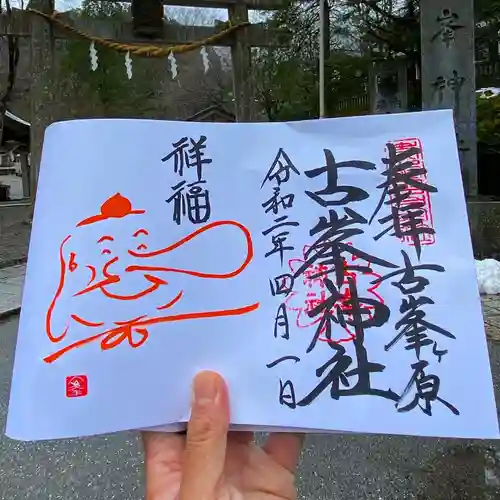 奉拝
古峯ヶ原
古峯神社
令和二年四月一日
祥福
峯神社